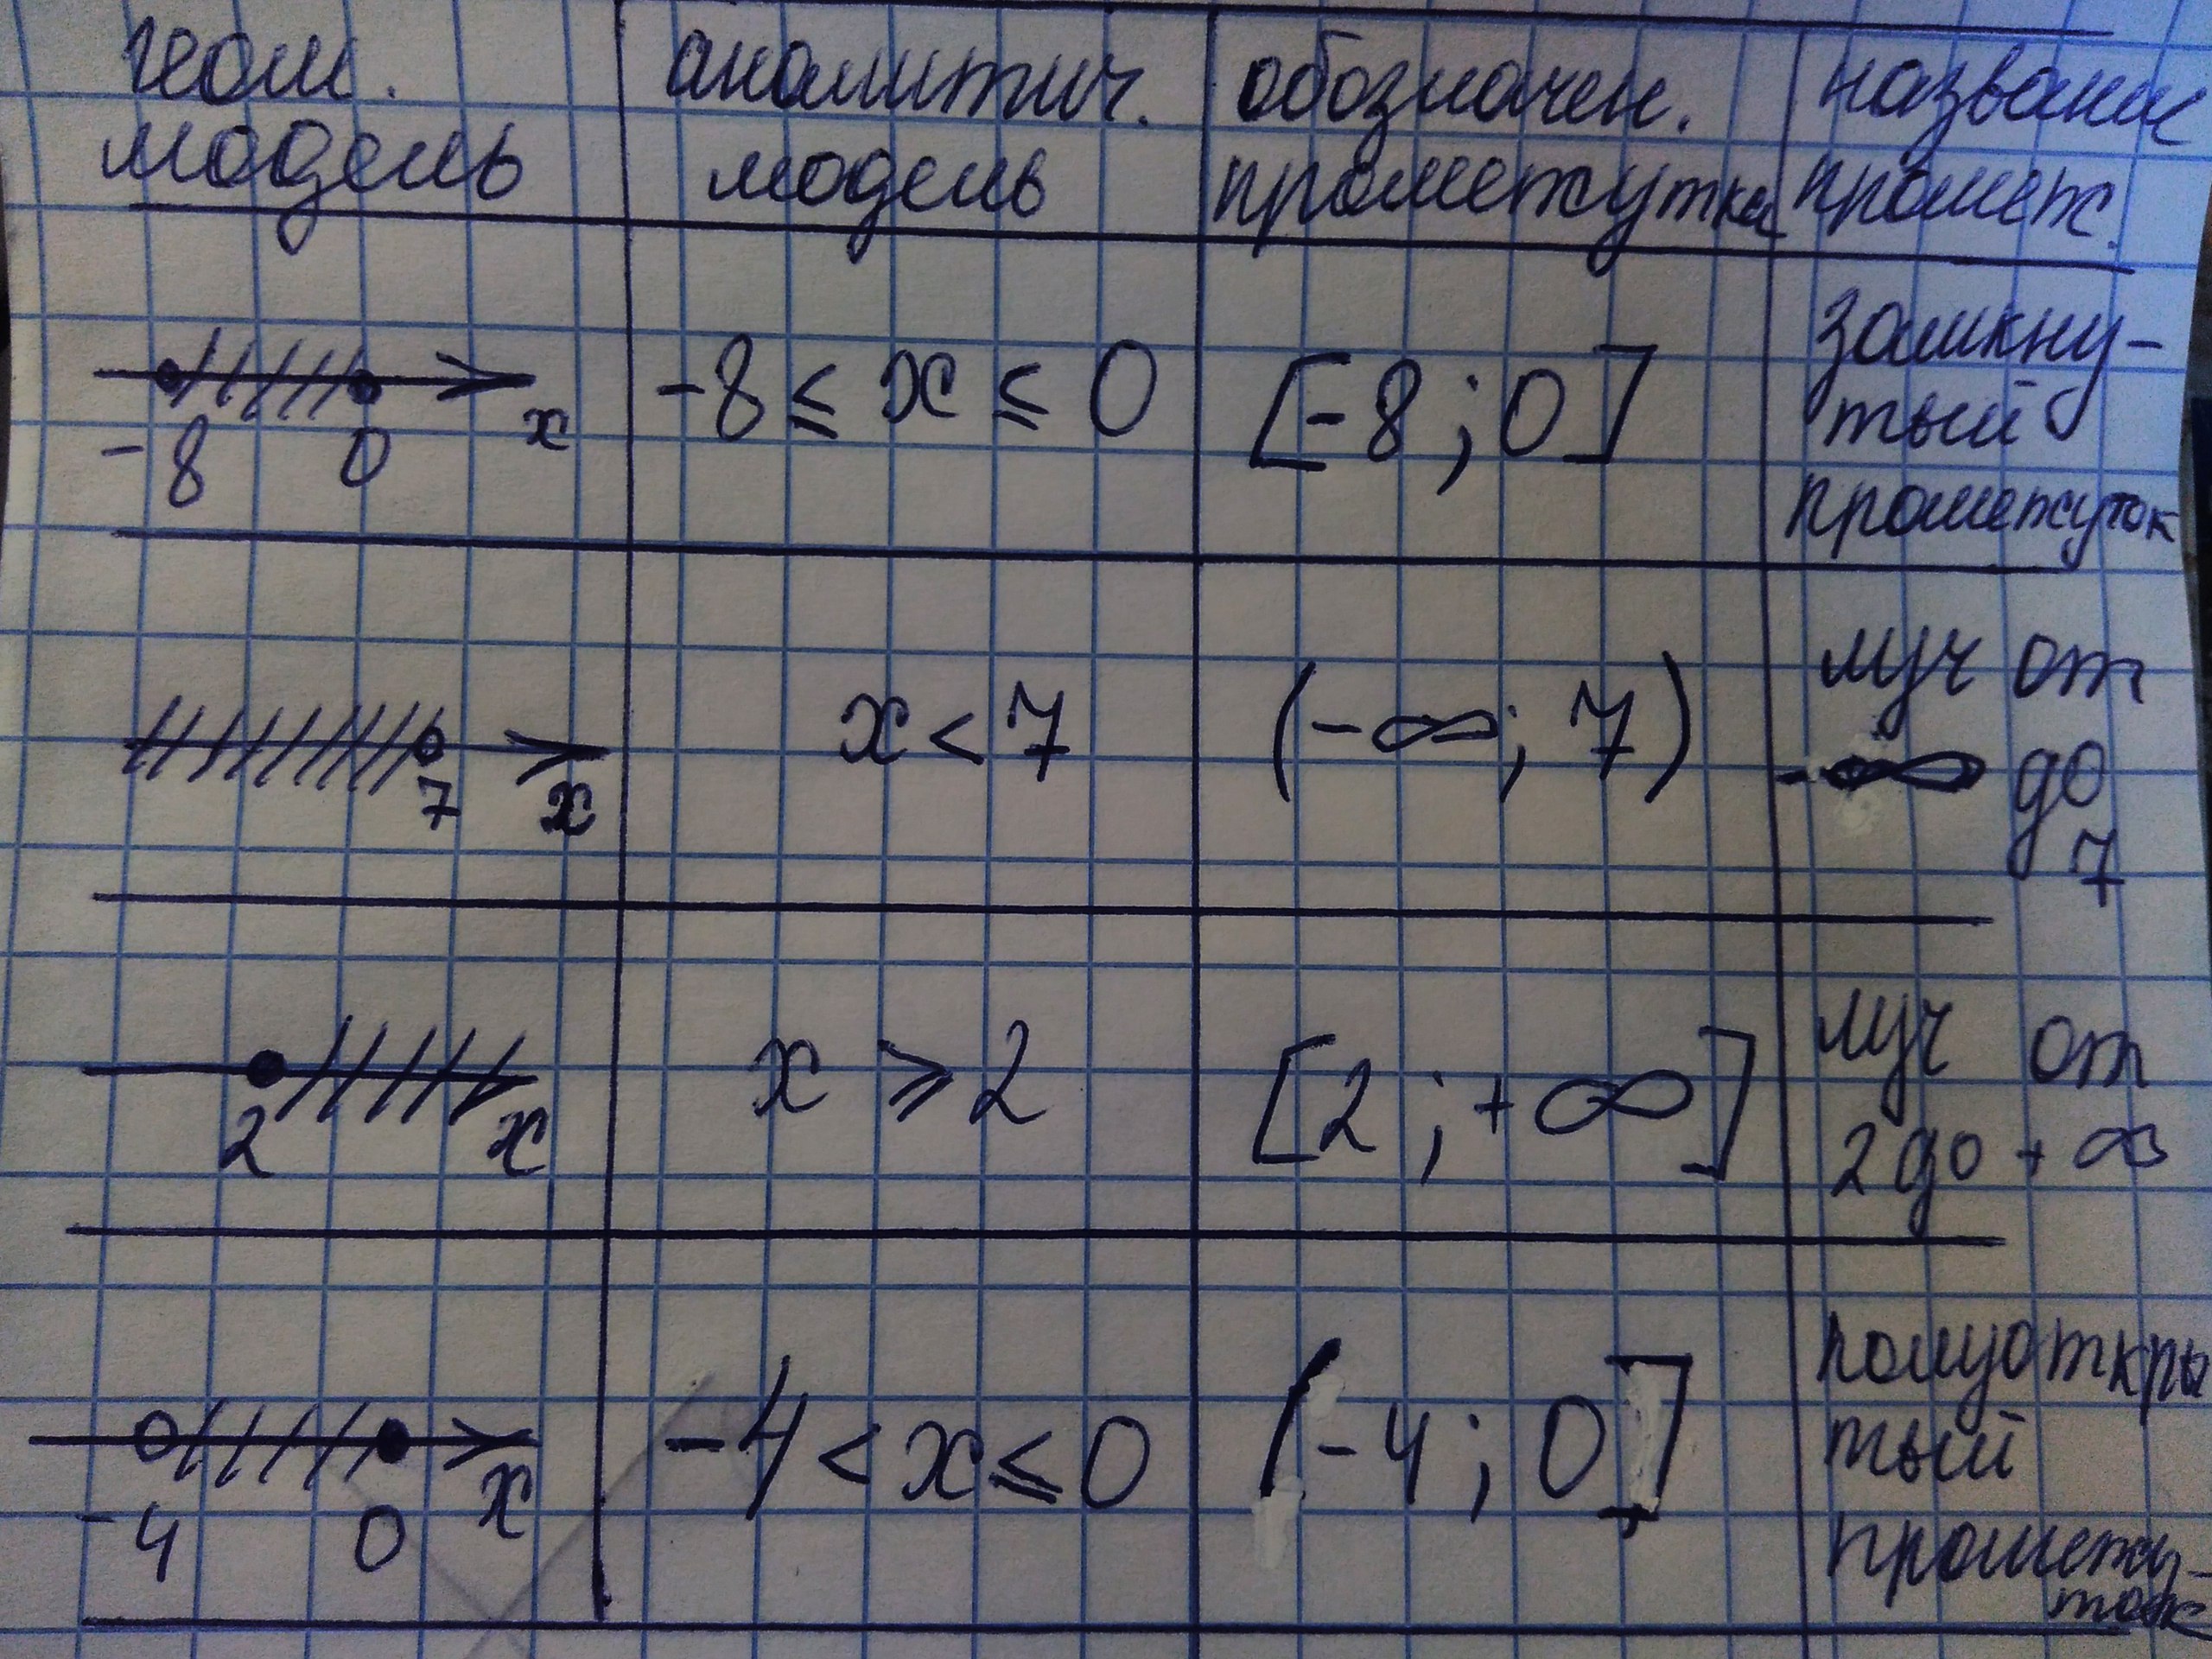 геом.
модель
аналитич.
модель
обозначен.
промежутка
название
промеж.
-8 0 x
-8 ≤ x ≤ 0
[-8 ; 0]
замкну-
тый
промежуток
7 x
x < 7
(-∞; 7)
луч от
-∞ до
7
2 x
x ⩾ 2
[2 ; +∞]
луч от
2 до + ∞
-4 0 x
-4 < x ≤ 0
(-4 ; 0]
полуоткры
тый
промежу-
ток